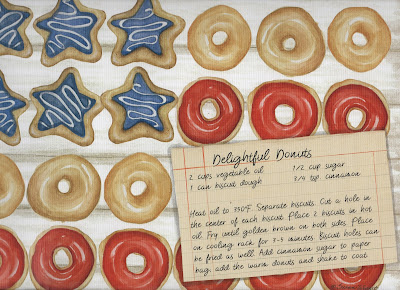 Delightful Donuts
2 cups vegetable oil 1/2 cup sugar
1 can biscuit dough 3/4 tsp. cinnamon
Heat oil to 350°F. Separate biscuits. Cut a hole in
the center of each biscuit. Place 2 biscuits in hot
oil. Fry until golden brown on both sides. Place
on cooling rack for 2-3 minutes. Biscuit holes can
be fried as well. Add cinnamon sugar to paper
bag, add the warm donuts and shake to coat.